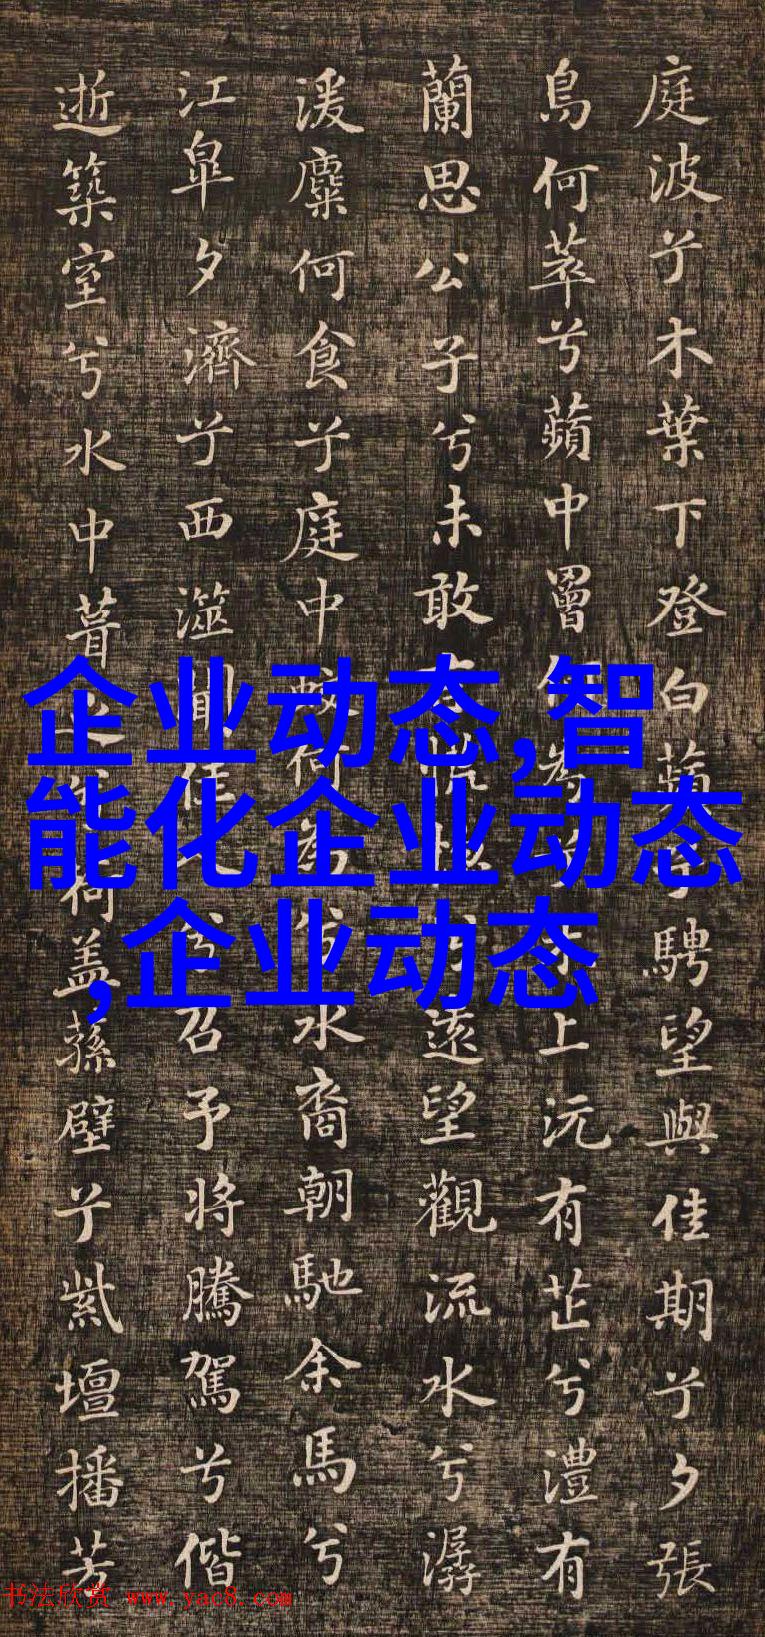 庭波兮木葉下登白蘋兮騁望與佳期兮夕張
鳥何萃兮蘋中罾何為兮木上沅有芷兮澧有
蘭思公子兮未敢言慌惚兮遠望觀流水兮潺
湲麋何食兮庭中蛟何為兮水裔朝馳余馬兮
江皋夕濟兮西澨聞佳人兮召予將騰駕兮偕
逝築室兮水中葺之荷盖蓀壁兮紫壇播芳
企业动态,智
能化企业动态
,企业动态
书法欣赏 www.yac8.com